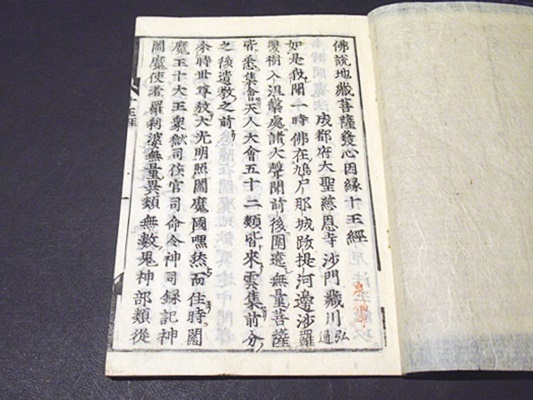 佛說地藏菩薩發心因緣十王經
成都府大聖慈恩寺沙門藏川
如是我聞一時佛在鳩尸那城跋提河邊沙羅
雙樹入涅槃處諸大聲聞前後圍遶無量菩薩
皆悉集會天人大會五十二類皆來雲集前分
之後遺教之前
尒時世尊放大光明照閻魔國嘿然而住時閻
魔王十大王衆獄司候官司命令神司錄記神
閻魔使者羅刹婆無量異類無數鬼神部類從